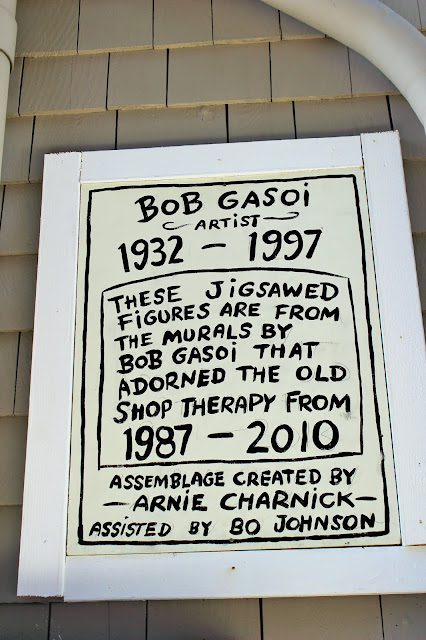 BOB GASOI
ARTIST
1932 - 1997
THESE JIGSAWED
FIGURES ARE FROM
THE MURALS BY
BOB GASOI THAT
ADORNED THE OLD
SHOP THERAPY FROM
1987 - 2010
ASSEMBLAGE CREATED BY
- ARNIE CHARNICK -
ASSISTED BY BO JOHNSON